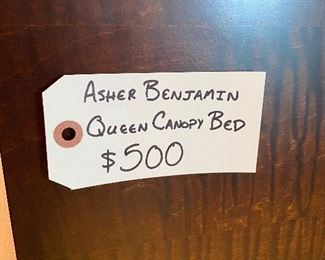 Asher Benjamin
Queen Canopy Bed
$500